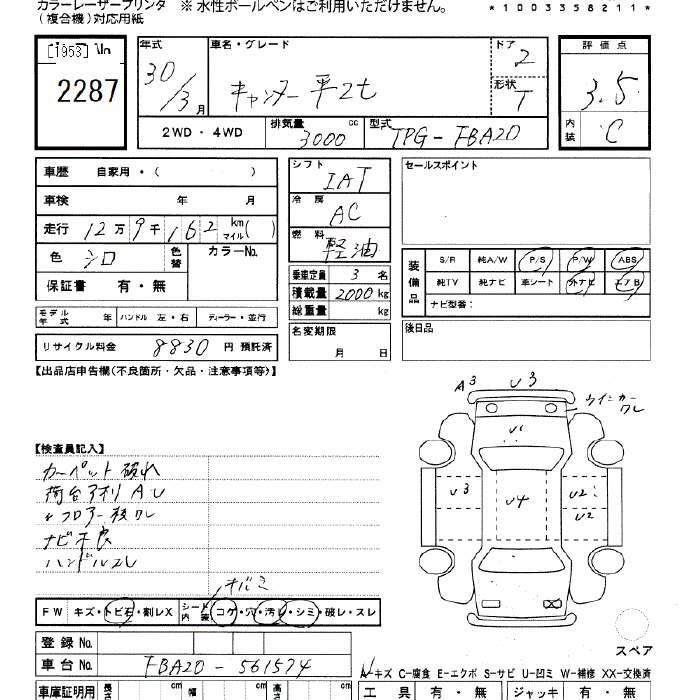 カラーレーザープリンタ ※ 水性ボールペンはご利用いただけません。
(複合機)対応用紙
*1003358211*
[1953]
2287
年式 車名・グレード ドア 評価点
30/3月 キャンター 平2t 2 3.5
形状 T
2WD・4WD 排気量 3000 cc 型式 TPG-FBA20 内装 C
車歴 自家用・( ) シフト IAT セールスポイント
車検 年 月 冷房 AC
走行 12万9千162 km マイル( ) 燃料 軽油
色 シロ 色替 カラーNo.
保証書 有・無 乗車定員 3 名
積載量 2000 kg
総重量 kg
装備品 S/R 純A/W P/S P/W ABS
純TV 純ナビ 革シート 外ナビ エアB
ナビ型番:
モデル年式 年 ハンドル 左・右 ディーラー・並行
名変期限 月 日 後日品
リサイクル料金 8830 円 預託済
【出品店申告欄(不良箇所・欠品・注意事項等)】
A3 U3 ウインカーワレ
U1
U3 U4 U2 U2
【検査員記入】
カーペット破れ
荷台アオリ AU
〃フロアー板ワレ
ナビ不良
ハンドルスレ
FW キズ・トビ石・割レX シート内装 コゲ・穴・汚レ・シミ・破レ・スレ
登録 No.
車台 No. FBA20-561574
スペア
A-キズ C-腐食 E-エクボ S-サビ U-凹ミ W-補修 XX-交換済
車庫証明用 cm 幅 cm 高さ cm 工具 有・無 ジャッキ 有・無